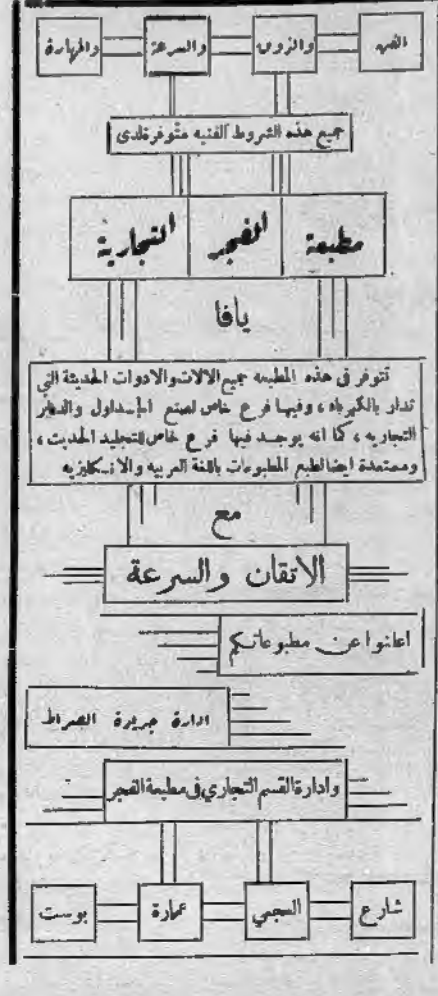 الفن والذوق والسرعة والمهارة
جميع هذه الشروط الفنيه متوفرة لدى
مطبعة الفجر التجارية
يافا
تتوفر فى هذه المطبعه جميع الالات والادوات الحديثة التي
تدار بالكهرباء ، وفيها فرع خاص لصنع الجداول والدفاتر
التجاريه ، كما انه يوجد فيها فرع خاص للتجليد الحديث ،
ومستعدة ايضا لطبع المطبوعات باللغة العربيه والانكليزيه
مع
الاتقان والسرعة
اعلنوا عن مطبوعاتكم
ادارة جريدة الصراط
وادارة القسم التجاري فى مطبعة الفجر
شارع العجمي عمارة بوست